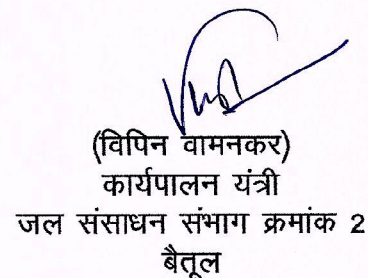 (विपिन वामनकर)
कार्यपालन यंत्री
जल संसाधन संभाग क्रमांक 2
बैतूल